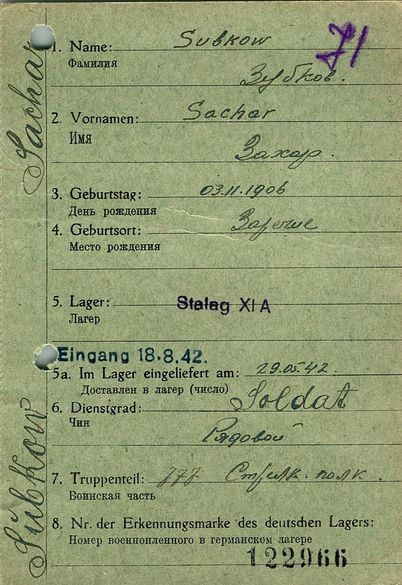 71
1. Name: Subkow
Фамилия
Зубков.
2. Vornamen: Sachar
Имя
Захар.
3. Geburtstag: 03.11.1906
День рождения
4. Geburtsort:
Место рождения
5. Lager: Stalag XI A
Лагерь
Eingang 18.8.42.
5a. Im Lager eingeliefert am: 29.05.42
Доставлен в лагер (число)
6. Dienstgrad: Soldat
Чин
Рядовой
7. Truppenteil: 777 Стрелк. полк.
Воинская часть
8. Nr. der Erkennungsmarke des deutschen Lagers:
Номер военнопленного в германском лагере
122966
Subkow Sachar